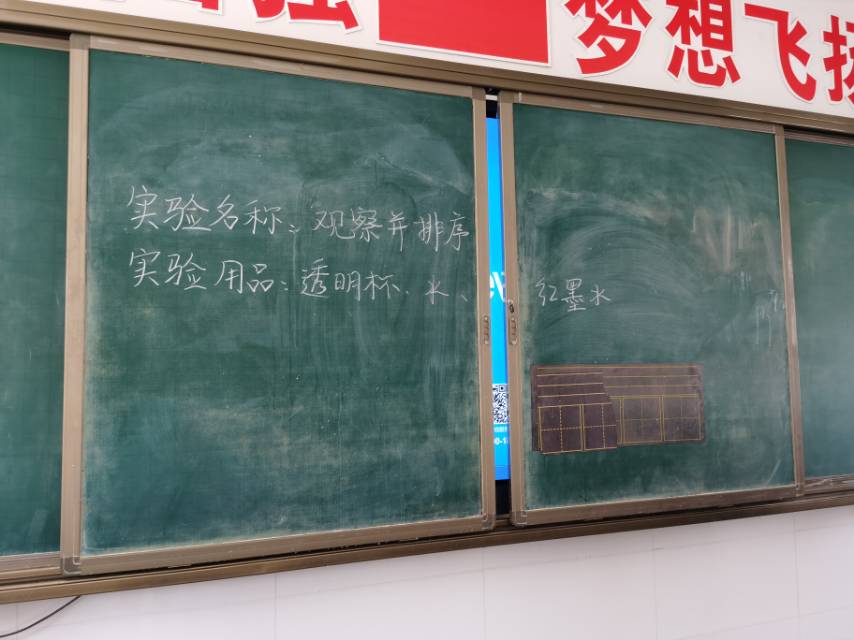 梦想飞扬
实验名称：观察并排序
实验用品：透明杯、水、红墨水